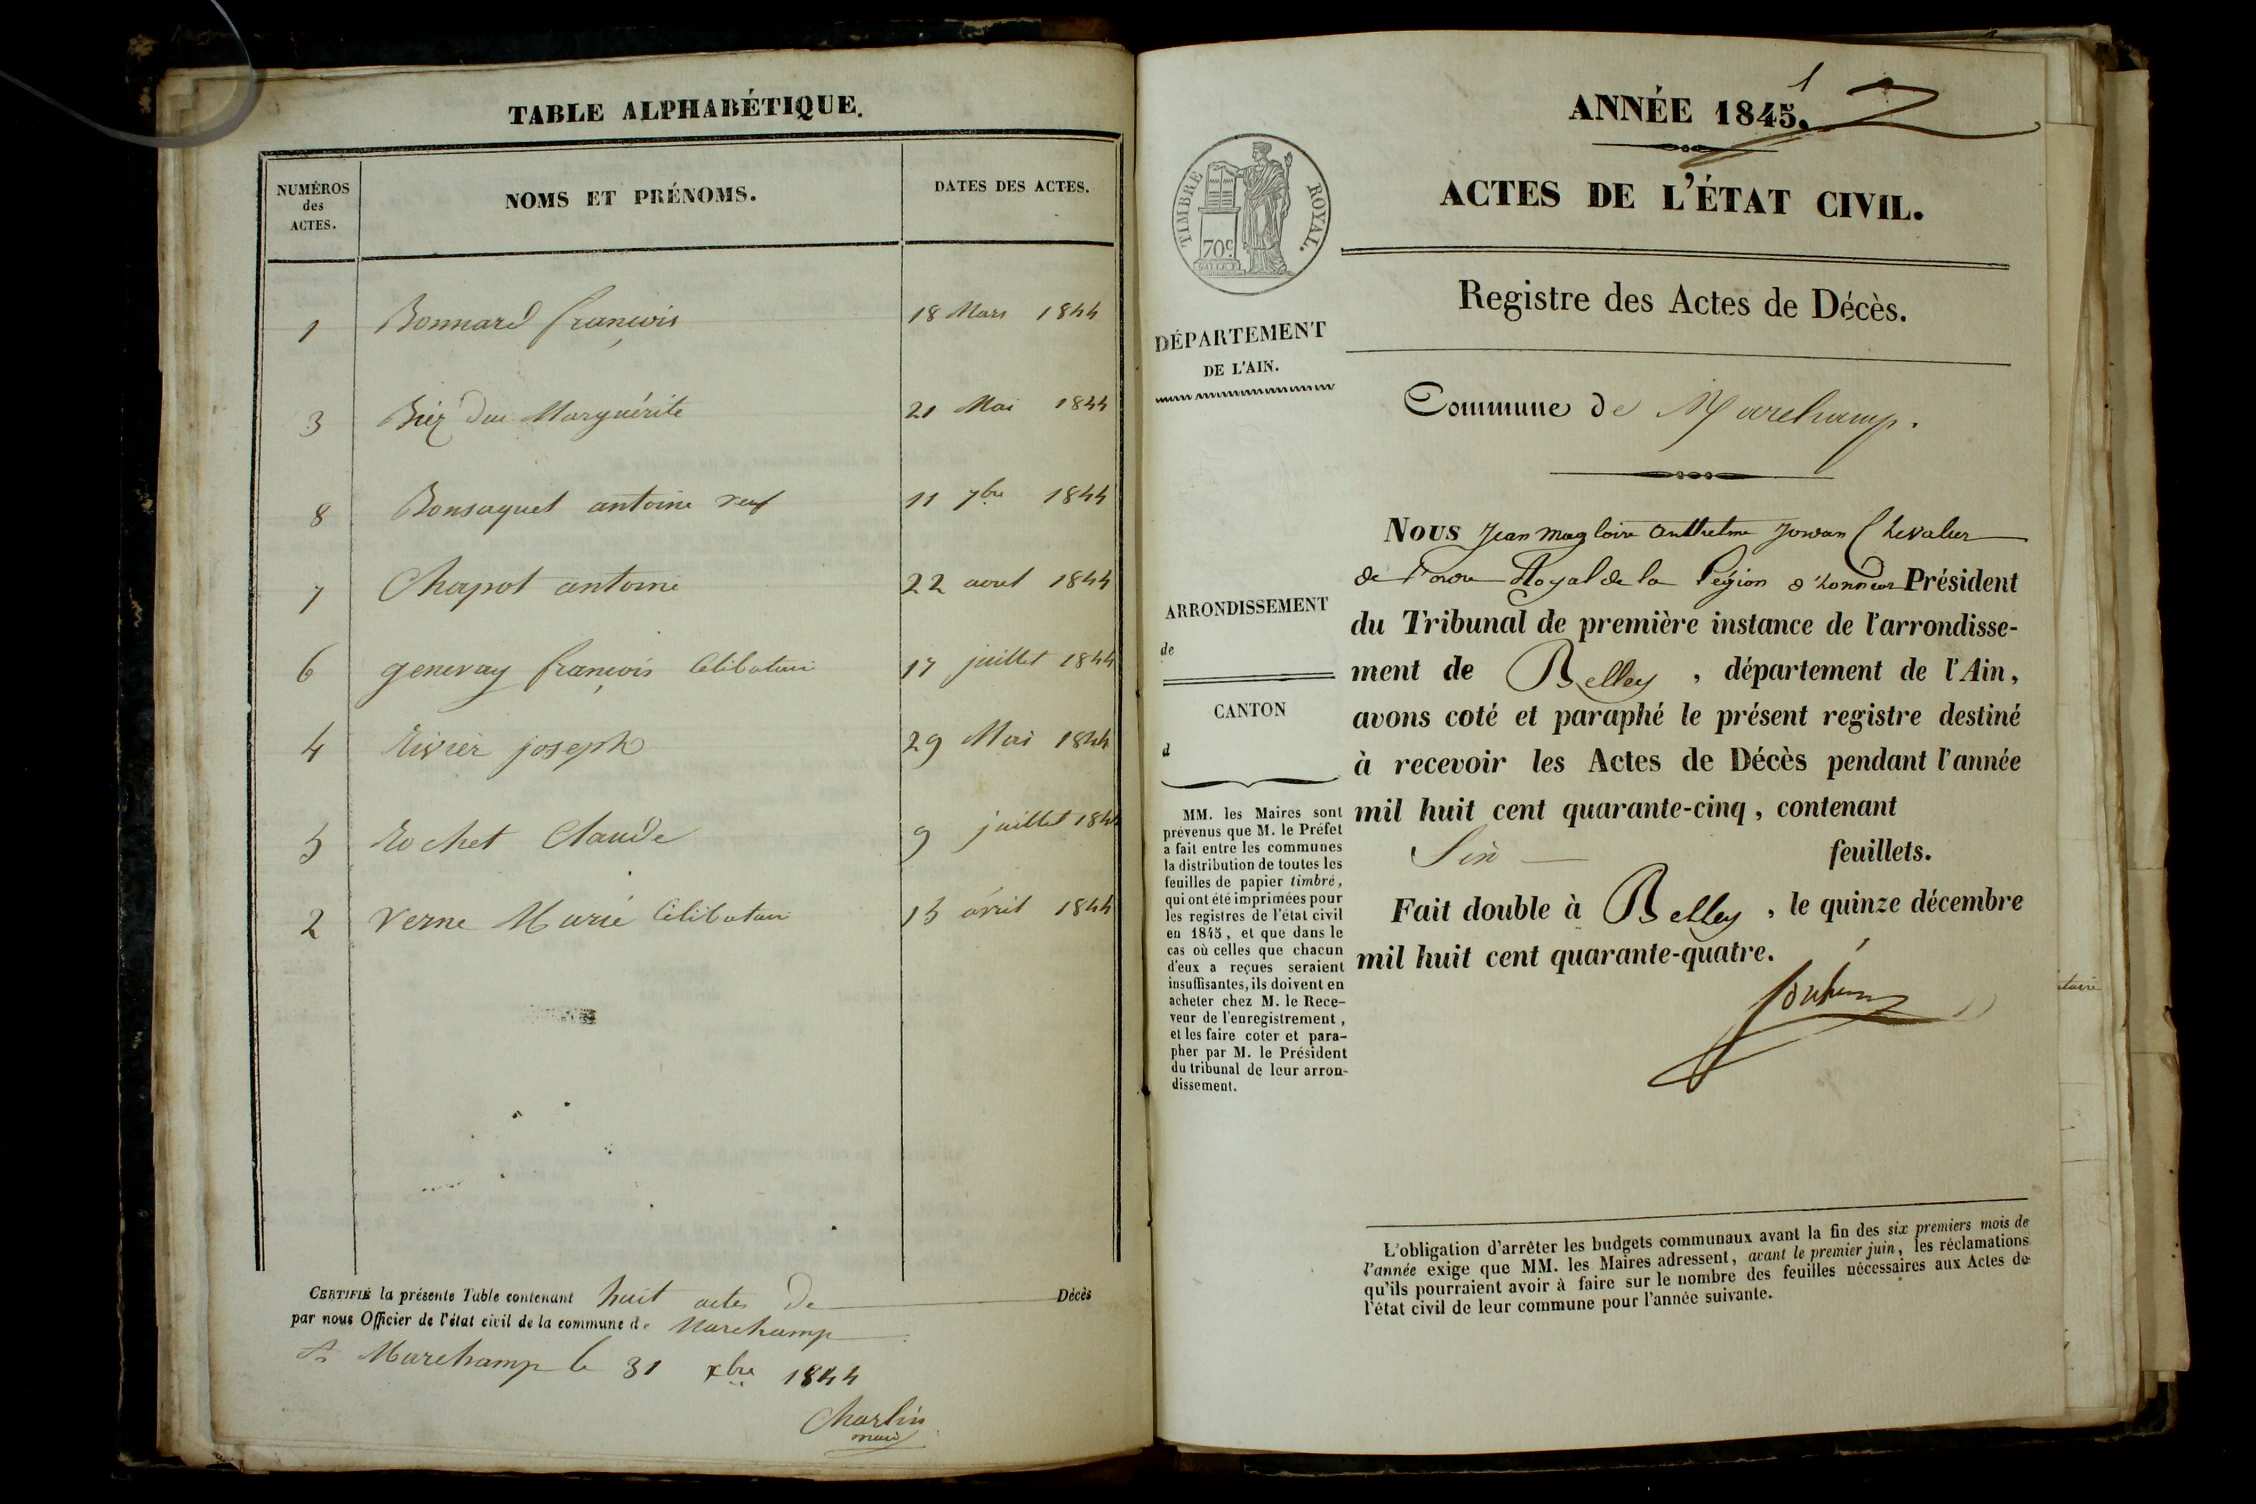 TABLE ALPHABÉTIQUE.
NUMÉROS
des
ACTES.
NOMS ET PRÉNOMS.
DATES DES ACTES.
1 Bonnard françois 18 Mars 1844
3 Marguérite 21 Mai 1844
8 Bonsaquet antoine veuf 11 7bre 1844
7 Chapot antoine 22 aout 1844
6 genevay françois Célibataire 17 juillet 1844
4 Rivier joseph 29 Mai 1844
5 Rochet Claude 9 juillet 1844
2 Verne Marie Célibataire 15 avril 1844
CERTIFIÉ la présente Table contenant huit actes de Décès
par nous Officier de l'état civil de la commune de Marchamp
A Marchamp le 31 xbre 1844
Charlin
maire
1
ANNÉE 1845.
ACTES DE L'ÉTAT CIVIL.
TIMBRE ROYAL.
70c
Registre des Actes de Décès.
DÉPARTEMENT
DE L'AIN.
Commune de Marchamp.
Nous Jean Magloire Anthelme Chevalier
de l'ordre Royal de la Légion d'honneur Président
du Tribunal de première instance de l'arrondisse-
ment de Belley, département de l'Ain,
avons coté et paraphé le présent registre destiné
à recevoir les Actes de Décès pendant l'année
mil huit cent quarante-cinq, contenant
Six feuillets.
Fait double à Belley, le quinze décembre
mil huit cent quarante-quatre.
ARRONDISSEMENT
de
CANTON
d
MM. les Maires sont
prévenus que M. le Préfet
a fait entre les communes
la distribution de toutes les
feuilles de papier timbré,
qui ont été imprimées pour
les registres de l'état civil
en 1845, et que dans le
cas où celles que chacun
d'eux a reçues seraient
insuffisantes, ils doivent en
acheter chez M. le Rece-
veur de l'enregistrement,
et les faire coter et para-
pher par M. le Président
du tribunal de leur arron-
dissement.
L'obligation d'arrêter les budgets communaux avant la fin des six premiers mois de
l'année exige que MM. les Maires adressent, avant le premier juin, les réclamations
qu'ils pourraient avoir à faire sur le nombre des feuilles nécessaires aux Actes de
l'état civil de leur commune pour l'année suivante.